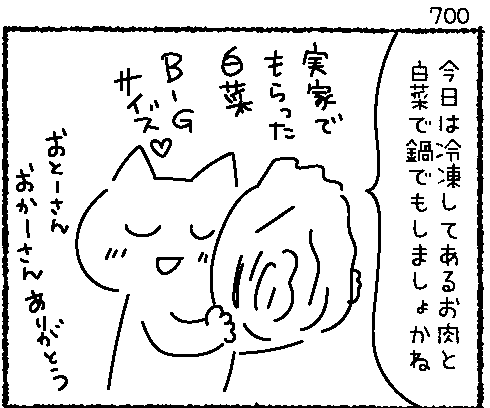 700
今日は冷凍してあるお肉と
白菜で鍋でもしましょかね
実家で
もらった
白菜
BIG
サイズ♡
おとーさん
おかーさん ありがとう